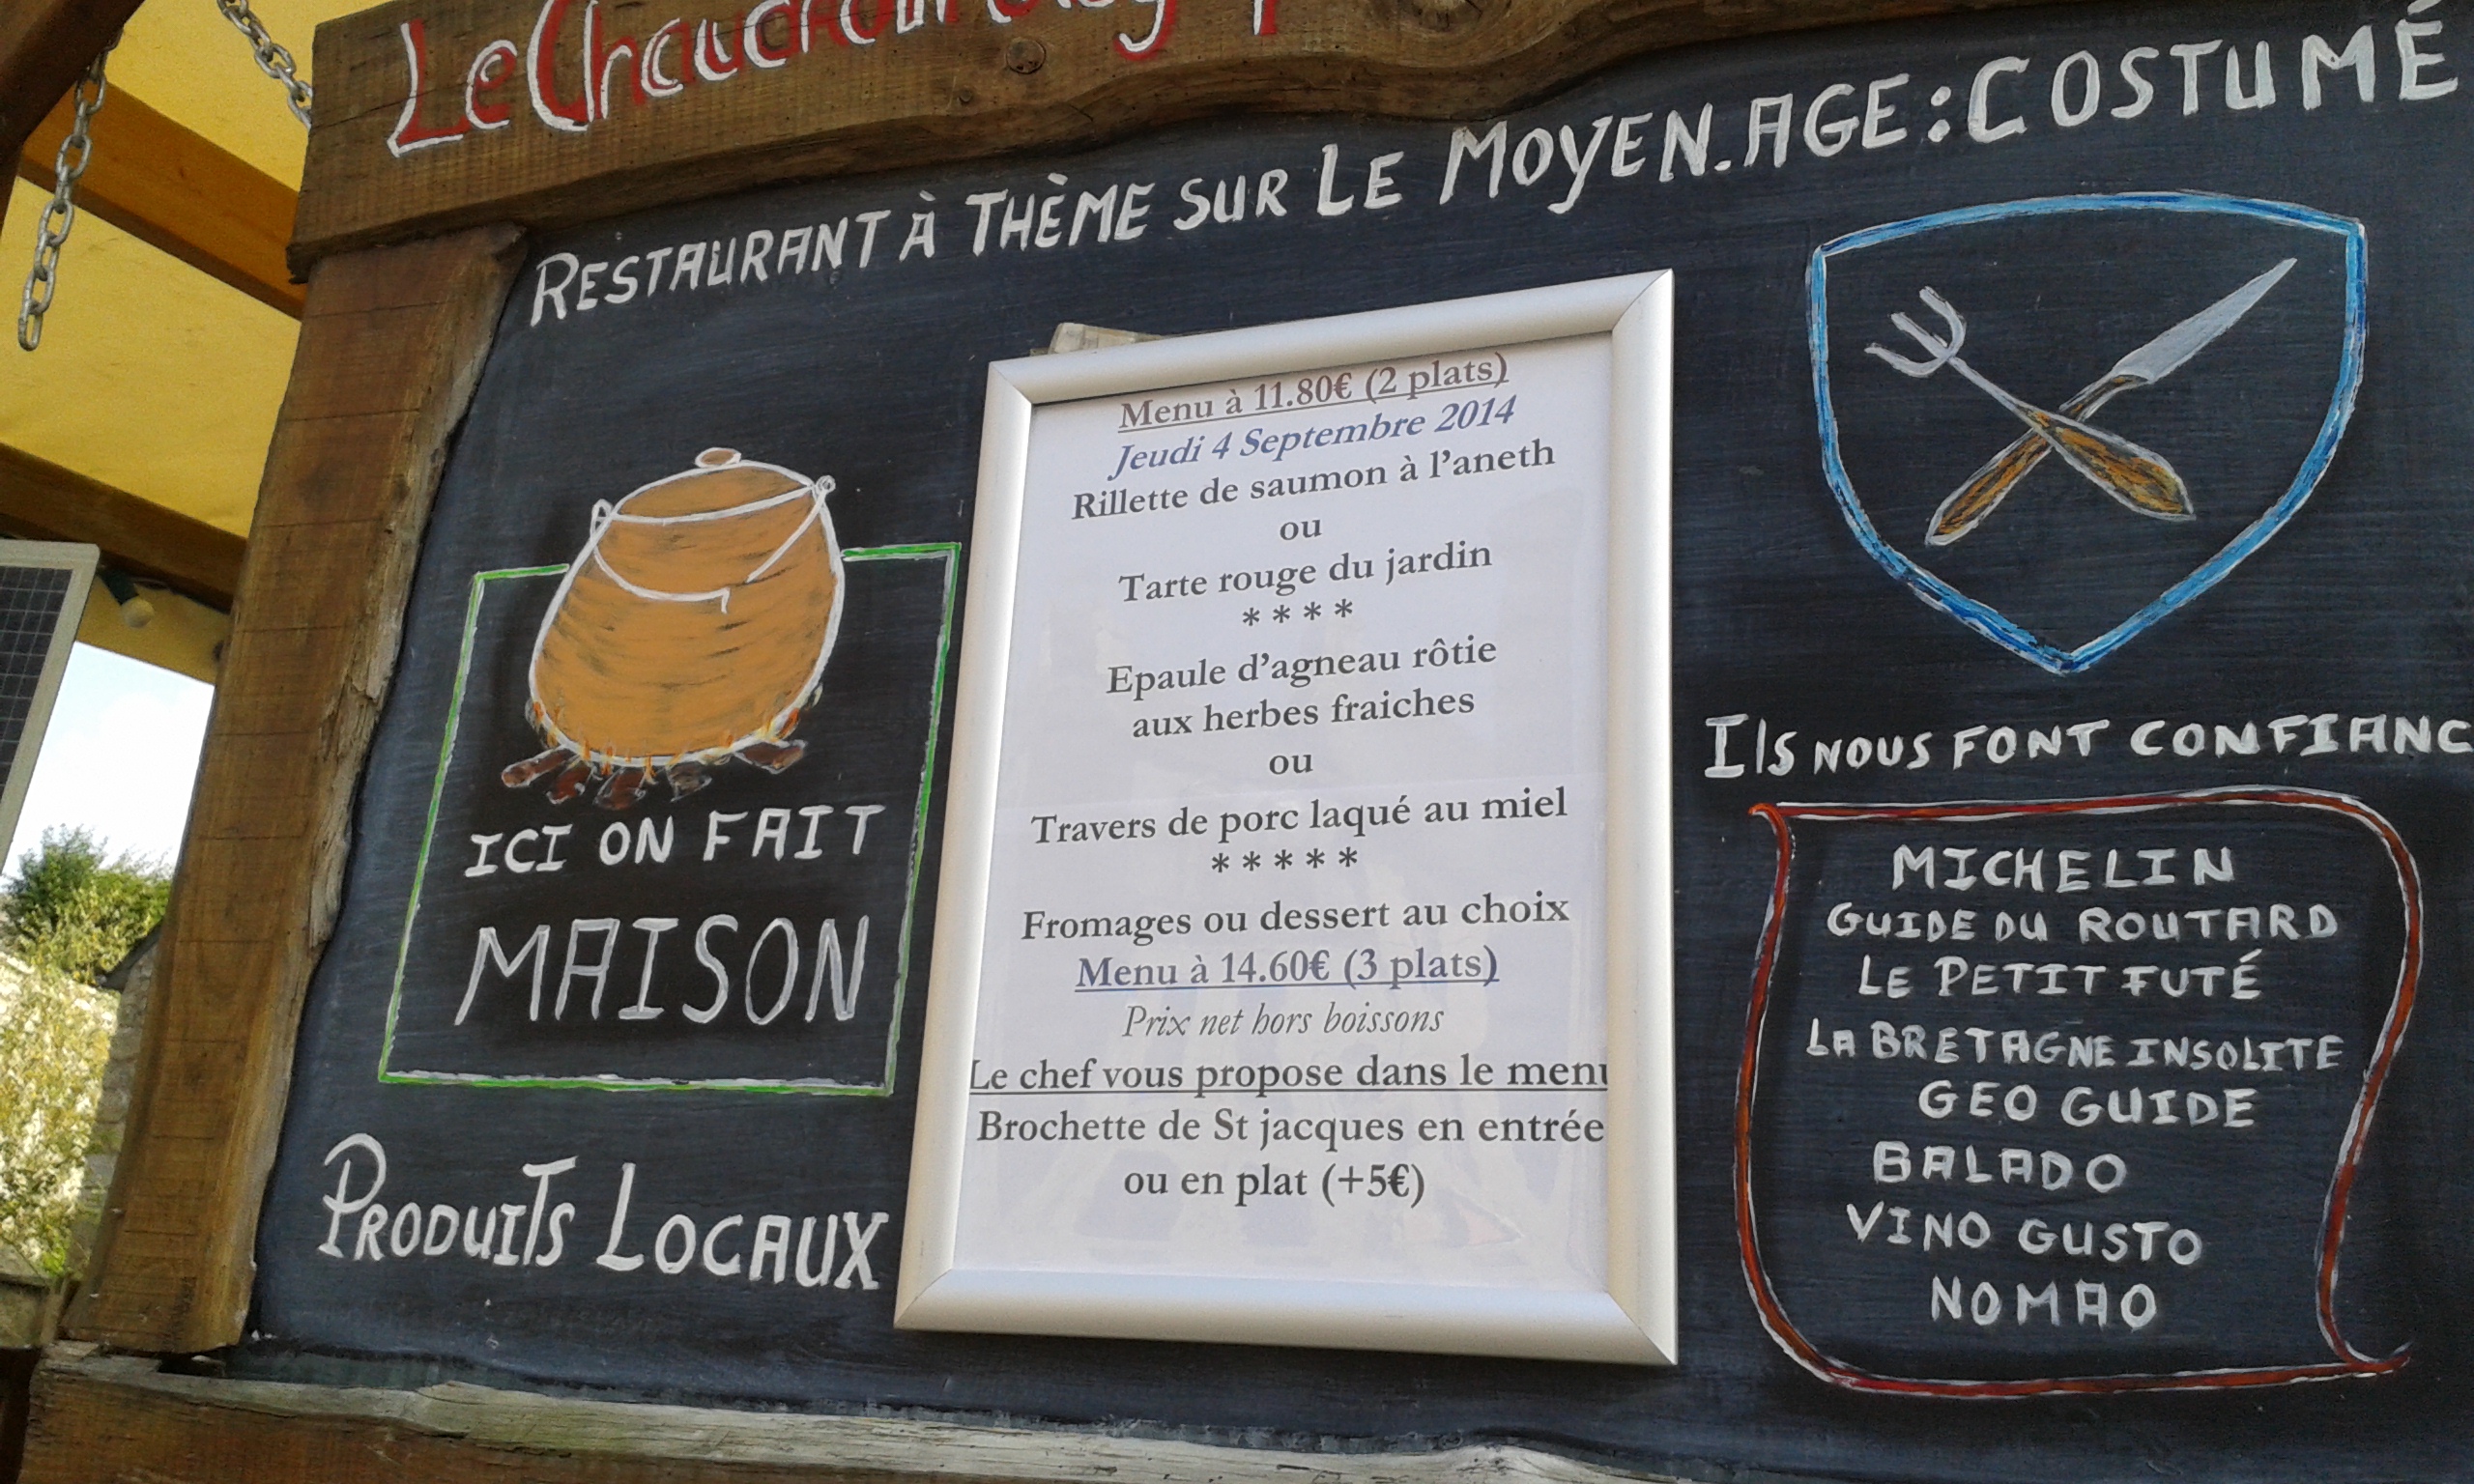 Le Chaudron
RESTAURANT À THÈME SUR LE MOYEN.AGE:COSTUMÉ
ICI ON FAIT
MAISON
PRODUITS LOCAUX
Menu à 11.80€ (2 plats)
Jeudi 4 Septembre 2014
Rillette de saumon à l'aneth
ou
Tarte rouge du jardin
****
Epaule d'agneau rôtie
aux herbes fraiches
ou
Travers de porc laqué au miel
*****
Fromages ou dessert au choix
Menu à 14.60€ (3 plats)
Prix net hors boissons
Le chef vous propose dans le menu
Brochette de St jacques en entrée
ou en plat (+5€)
Ils NOUS FONT CONFIANC
MICHELIN
GUIDE DU ROUTARD
LE PETIT FUTÉ
LA BRETAGNE INSOLITE
GEO GUIDE
BALADO
VINO GUSTO
NOMAO